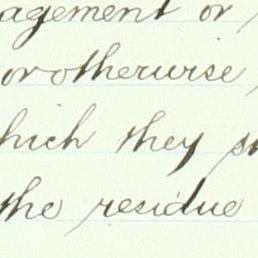 agement or
or otherwise
hich they s
the residue